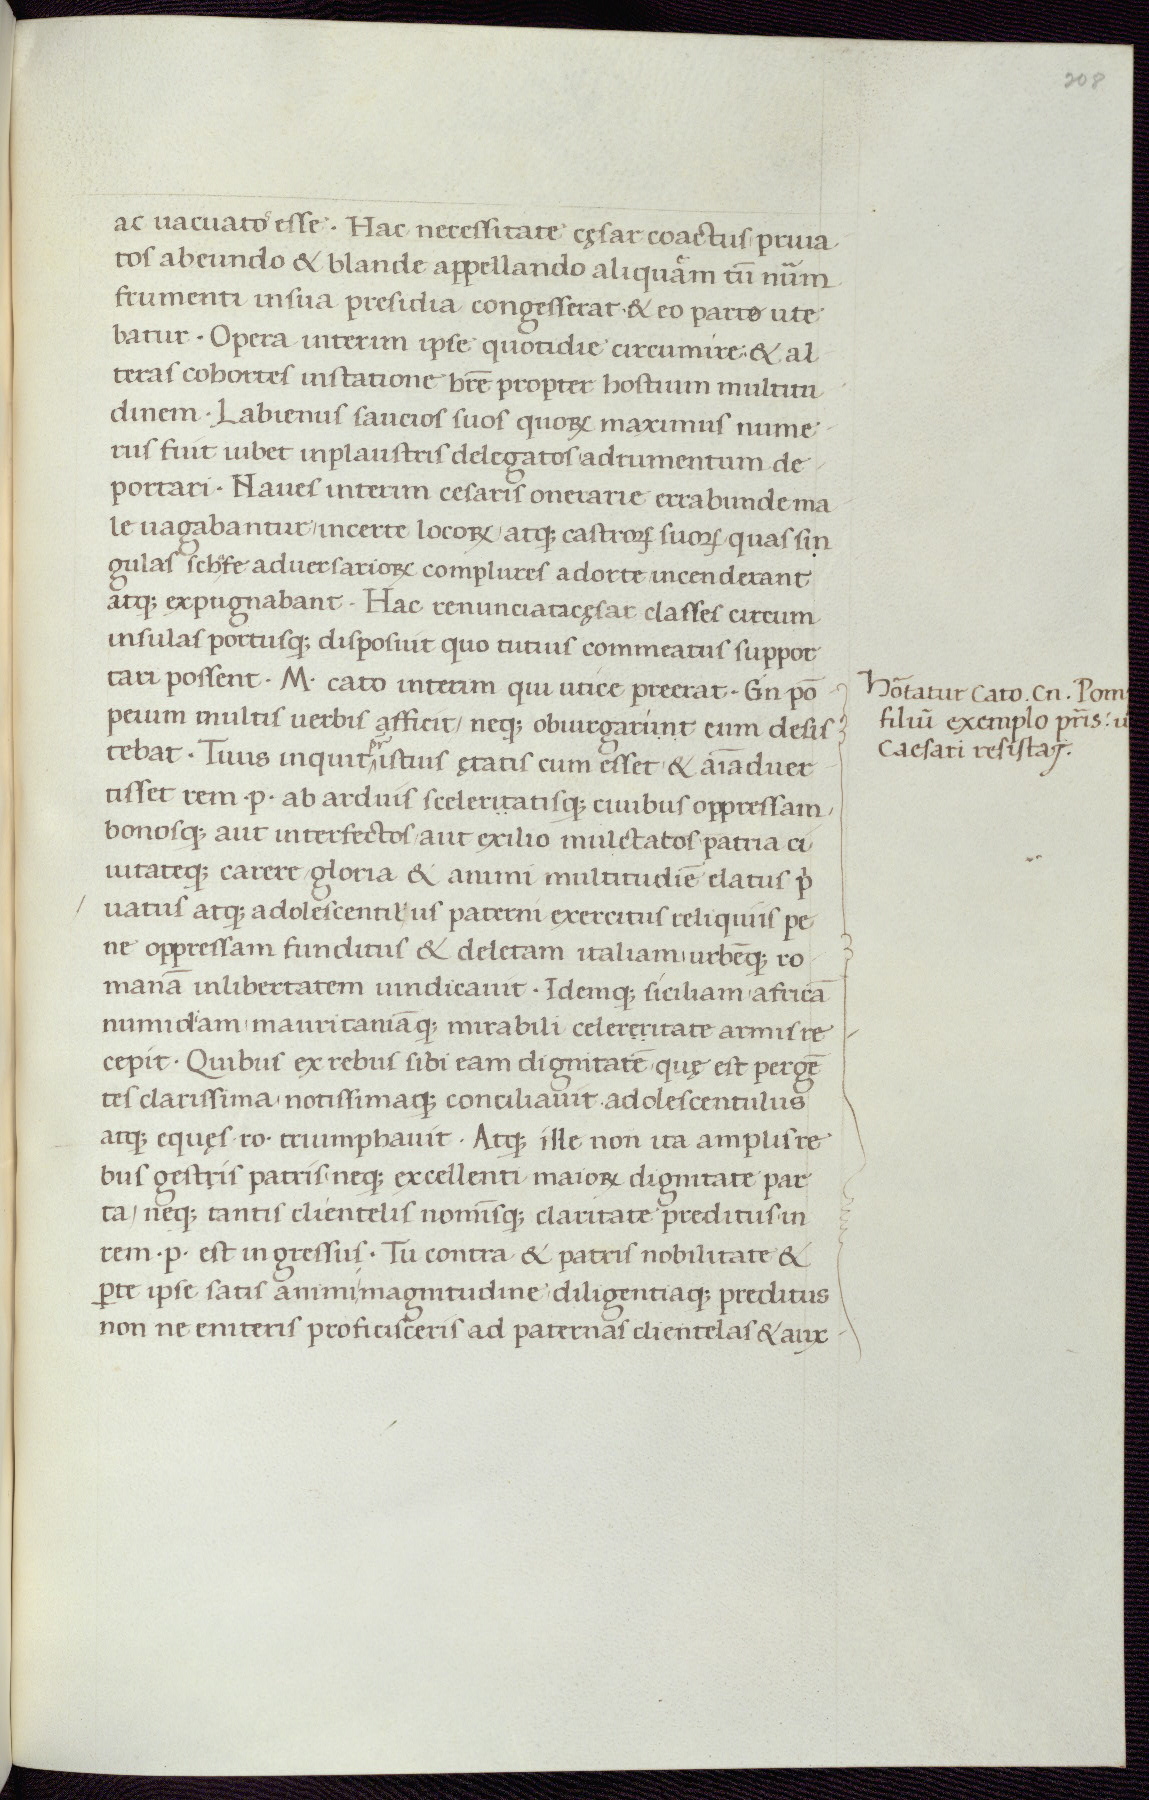 208
ac uacuato esse · Hac necessitate cęsar coactus priua
tos abeundo & blande appellando aliquãm tũ nũm
frumenti insua presidia congesserat · & eo parto ute
batur · Opera interim ipse quotidie circumire · & al
teras cohortes instatione hr̃e propter hostium multitu
dinem · Labienus saucios suos quoꝝ maximus nume
rus fuit iubet inplaustris delegatos adrumentum de
portari · Naues interim cesaris onerarie errabunde ma
le uagabantur incerte locoꝝ / atq; castroꝝ suoꝝ quas sin
gulas scafe aduersarioꝝ complures adorte incenderant
atq; expugnabant · Hac renunciata cęsar classes circum
insulas portusq; disposuit quo tutius commeatus suppor
tari possent · M · cato interim qui utice preerat · Gn põ
peium multis uerbis afficit / neq; obiurgarunt eum desis
tebat · Tuus inquit pr̃ istius ętatis cum esset & aĩaduer
tisset rem · p · ab arduis sceleritatisq; ciuibus oppressam
bonosq; aut interfectos aut exilio mulctatos patria ci
uitateq; carere gloria & animi multitudiẽ elatus p̃
uatus atq; adolescentilus paterni exercitus reliquiis pe
ne oppressam funditus & deletam italiam urbẽq; ro
manã inlibertatem uindicauit · Idemq; siciliam africã
numidiam mauritaniãq; mirabili celereritate armis re
cepit · Quibus ex rebus sibi eam dignitatẽ quę est pergẽ
tes clarissima notissimaq; conciliauit adolescentulus
atq; equęs · ro · triumphauit · Atq; ille non ita amplis re
bus gestris patris neq; excellenti maioꝝ dignitate par
ta / neq; tantis clientelis nomĩsq; claritate preditus in
rem · p · est ingressus · Tu contra & patris nobilitate &
ꝑte ipse satis animi magnitudine diligentiaq; preditus
non ne eniteris proficisceris ad paternas clientelas & aux
Hõtatur Cato. Cn. Pom
filiũ exemplo pr̃is: u
Caesari resistat.